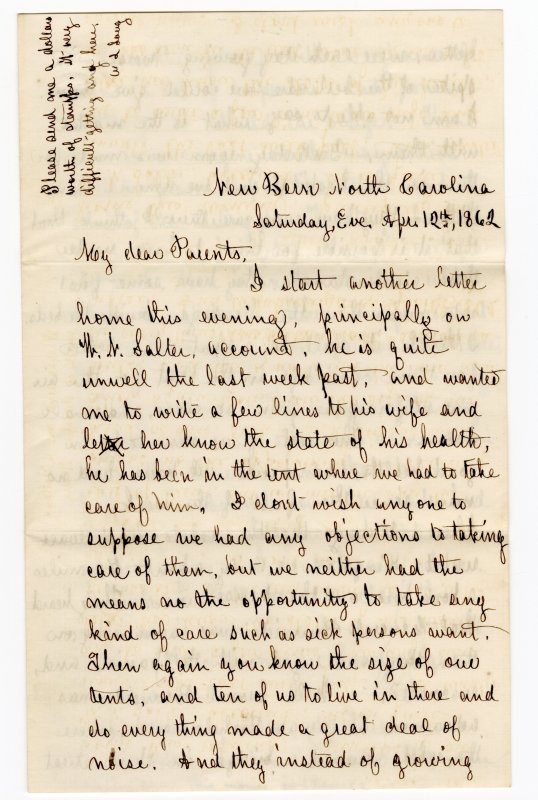 Please send me a dollars
worth of stamps, it very
difficult getting any here.
New Bern North Carolina
Saturday, Eve. Apr. 12th, 1862
My dear Parents,
I start another letter
home this evening, principally on
W. N. Salter, account, he is quite
unwell the last week past, and wanted
me to write a few lines to his wife and
let her know the state of his health,
he has been in the tent where we had to take
care of him. I dont wish any one to
suppose we had any objections to taking
care of them, but we neither had the
means no the opportunity to take any
kind of care such as sick persons want.
Then again you know the size of our
tents, and ten of us to live in there and
do every thing made a great deal of
noise. And they instead of growing